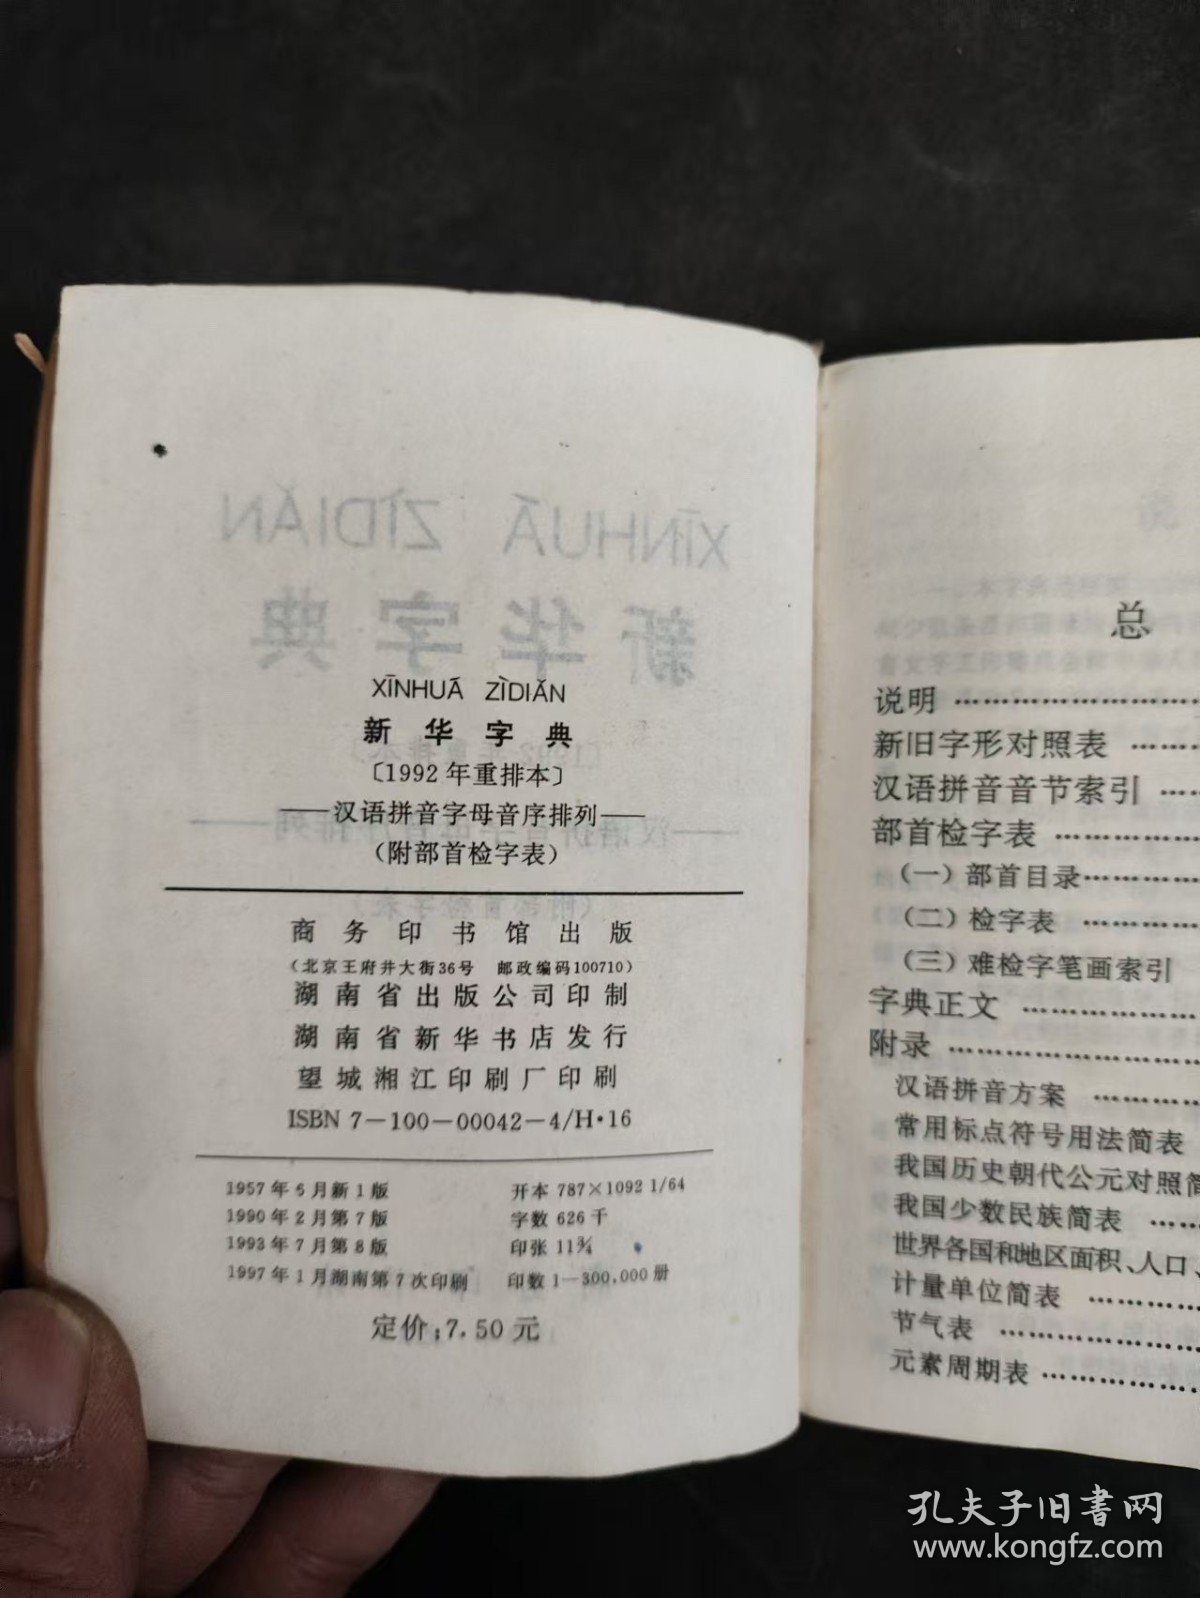 XĪNHUÁ ZÌDIǍN
新华字典
〔1992年重排本〕
——汉语拼音字母音序排列——
（附部首检字表）
商务印书馆出版
（北京王府井大街36号 邮政编码100710）
湖南省出版公司印制
湖南省新华书店发行
望城湘江印刷厂印刷
ISBN 7-100-00042-4/H·16
1957年6月新1版 开本 787×1092 1/64
1990年2月第7版 字数 626千
1993年7月第8版 印张 11¾
1997年1月湖南第7次印刷 印数 1—300,000册
定价：7.50元
总
说明 ………………
新旧字形对照表 ………
汉语拼音音节索引 ……
部首检字表 ……………
（一）部首目录…………
（二）检字表 …………
（三）难检字笔画索引
字典正文 ………………
附录 ……………………
汉语拼音方案 …………
常用标点符号用法简表
我国历史朝代公元对照简
我国少数民族简表 ……
世界各国和地区面积、人口、
计量单位简表 …………
节气表 …………………
元素周期表 ……………
孔夫子旧書网
www.kongfz.com